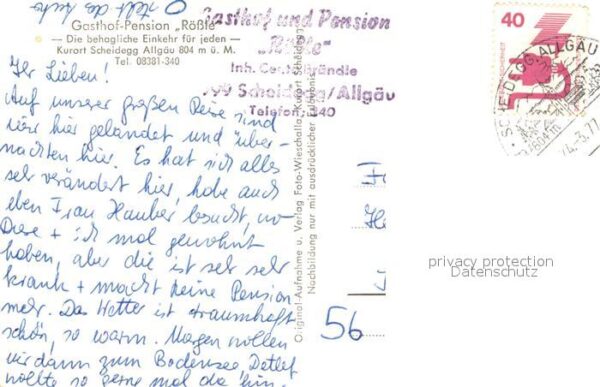 Gasthof-Pension „Rößle"
— Die behagliche Einkehr für jeden —
Kurort Scheidegg Allgäu 804 m ü. M.
Tel. 08381-340
Gasthof und Pension
„Rößle"
Inh.
Scheidegg/Allgäu
Telefon 340
40
SCHEIDEGG ALLGÄU
Ihr Lieben!
Auf unserer großen Reise sind
wir hier gelandet und über-
nachten hier. Es hat sich alles
sehr verändert hier, habe auch
eben Frau Hauber besucht, wo
Diese + ich mal gewohnt
haben, aber die ist sehr sehr
krank + macht keine Pension
mehr. Das Wetter ist traumhaft
schön, so warm. Morgen wollen
wir dann zum Bodensee, Detlef
wollte so gerne mal da hin-
Original-Aufnahme u. Verlag Foto-Wieschalla, Kurort Scheidegg
Nachbildung nur mit ausdrücklicher Erlaubnis
56
privacy protection
Datenschutz